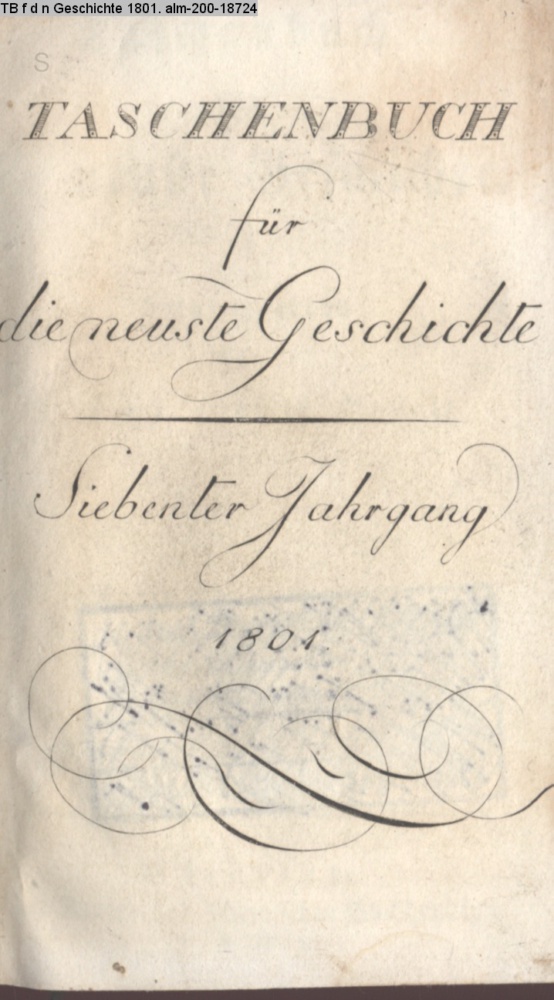 TB f d n Geschichte 1801. alm-200-18724
S
TASCHENBUCH
für
die neuste Geschichte
Siebenter Jahrgang
1801